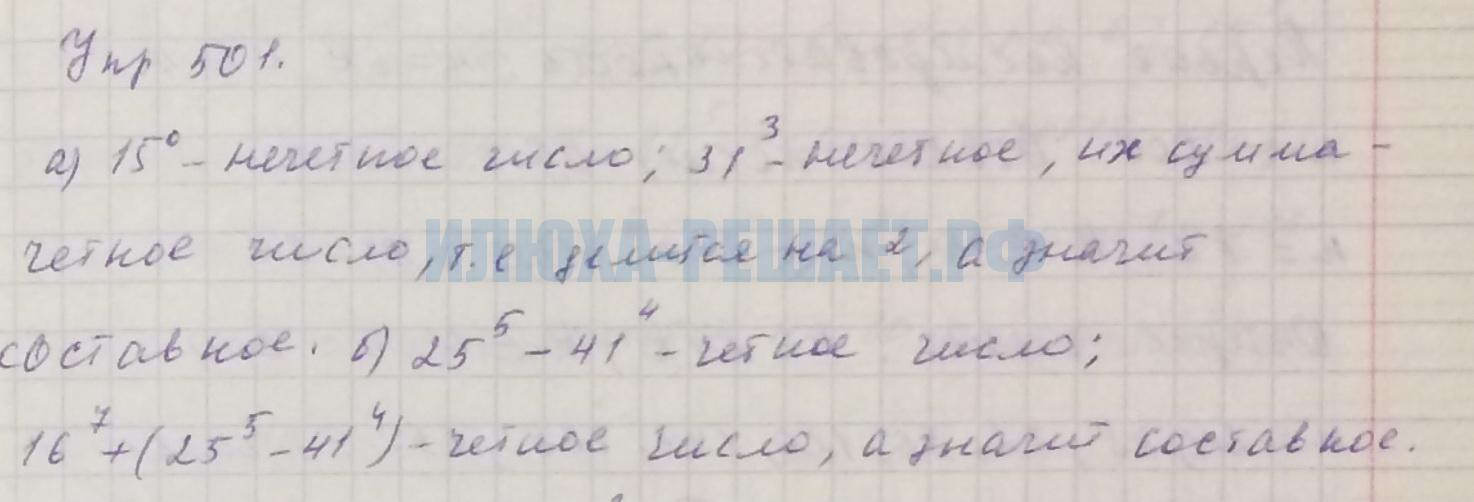 Упр 501.
а) 15⁰ - нечетное число; 31³ - нечетное, их сумма -
четное число, т.е делится на 2, а значит
ИЛЮХА-РЕШАЕТ.РФ
составное. б) 25⁵ - 41⁴ - четное число;
16⁷ + (25⁵ - 41⁴) - четное число, а значит составное.